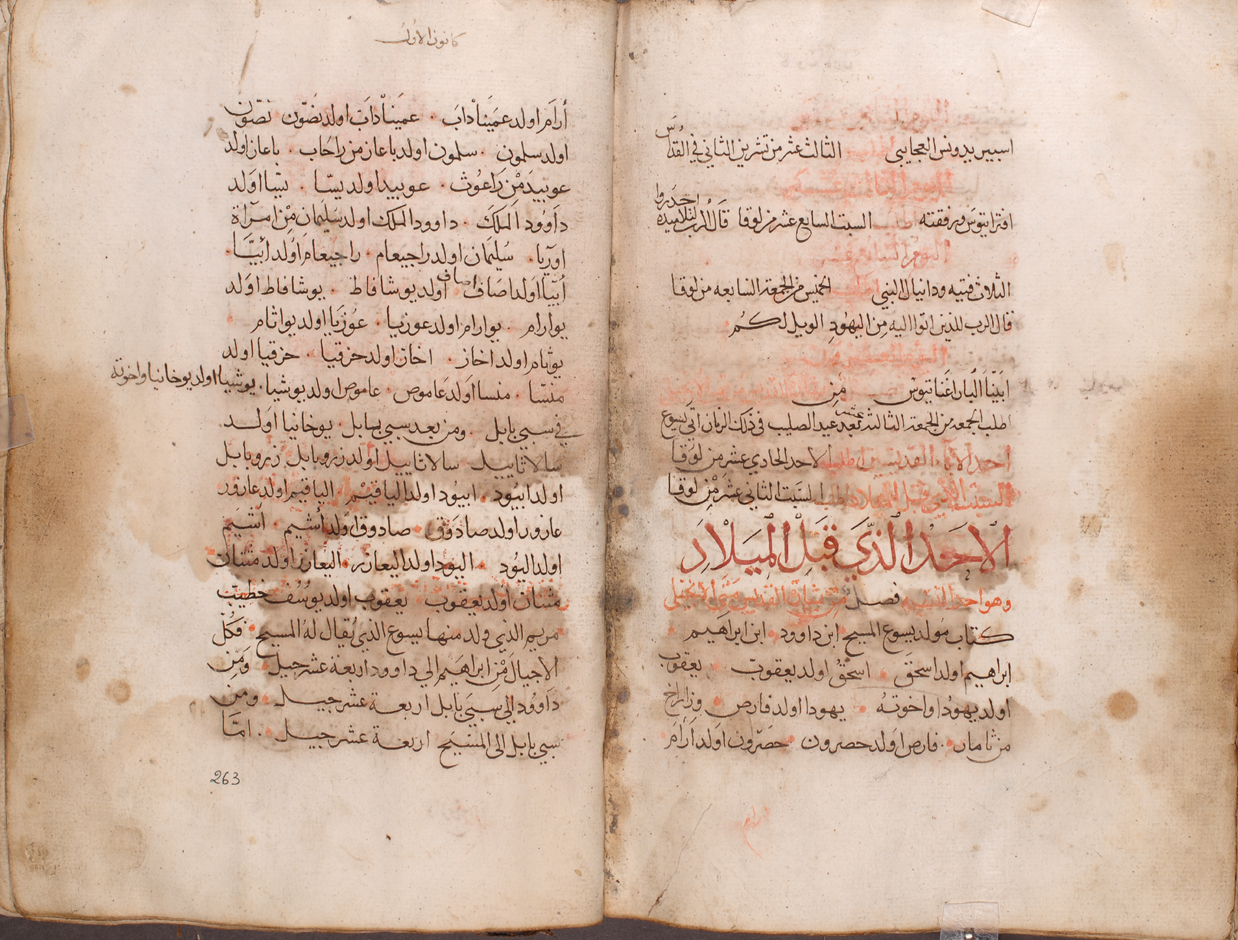 اسبيريدونس العجايبي الثالث عشر من تشرين الثاني في القداس
افتراتيوس ورفقته السبت السابع عشر من لوقا قال الرب لتلاميذه احذروا
الثلاث فتيه ودانيال النبي الخميس من الجمعة السابعه من لوقا
قال الرب للذين اتوا اليه من اليهود الويل لكم
ابينا البار اغناتيوس من
اطلب الجمعه من الجمعة الثالثة عشر بعد عيد الصليب في ذلك الزمان اتى يسوع
احد الاباء القديسين اطلب الاحد الحادي عشر من لوقا
السبت الذي قبل الميلاد اطلب السبت الثاني عشر من لوقا
الاحد الذي قبل الميلاد
وهو احد النسبه فصل من بشارة القديس متى الانجيلي
كتاب مولد يسوع المسيح ابن داوود ابن ابراهيم
ابراهيم اولد اسحق اسحق اولد يعقوب يعقوب
اولد يهودا واخوته يهودا اولد فارص وزارح
من ثامار فارص اولد حصرون حصرون اولد ارام
ارام
كانون الاول
أرام اولد عميناداب عميناداب اولد نصون نصون
اولد سلمون سلمون اولد باعاز من راحاب باعاز اولد
عوبيد من راعوث عوبيد اولد يسا يسا اولد
داوود الملك داوود الملك اولد سليمان من امرأة
اوريا سليمان اولد راجيعام راجيعام اولد أبيا
أبيا اولد اصاف اصاف اولد يوشافاط يوشافاط اولد
يوارام يوارام اولد عوزيا عوزيا اولد يواثام
يوثام اولد اخاز اخاز اولد حزقيا حزقيا اولد
منسا منسا اولد عاموص عاموص اولد يوشيا يوشيا اولد يوخانيا واخوته
في سبي بابل ومن بعد سبي بابل يوخانيا اولد
سالاثاييل سالاثاييل اولد زروبابل زروبابل
اولد ابيود ابيود اولد الياقيم الياقيم اولد عازور
عازور اولد صادوق صادوق اولد أشيم أشيم
اولد اليود اليود اولد اليعازر اليعازر اولد متثان
متثان اولد يعقوب يعقوب اولد يوسف خطيب
مريم الذي ولد منها يسوع الذي يقال له المسيح فكل
الاجيال من ابراهيم الى داوود اربعة عشر جيل ومن
داوود الى سبي بابل اربعة عشر جيل ومن
سبي بابل الى المسيح اربعة عشر جيل امّا
263